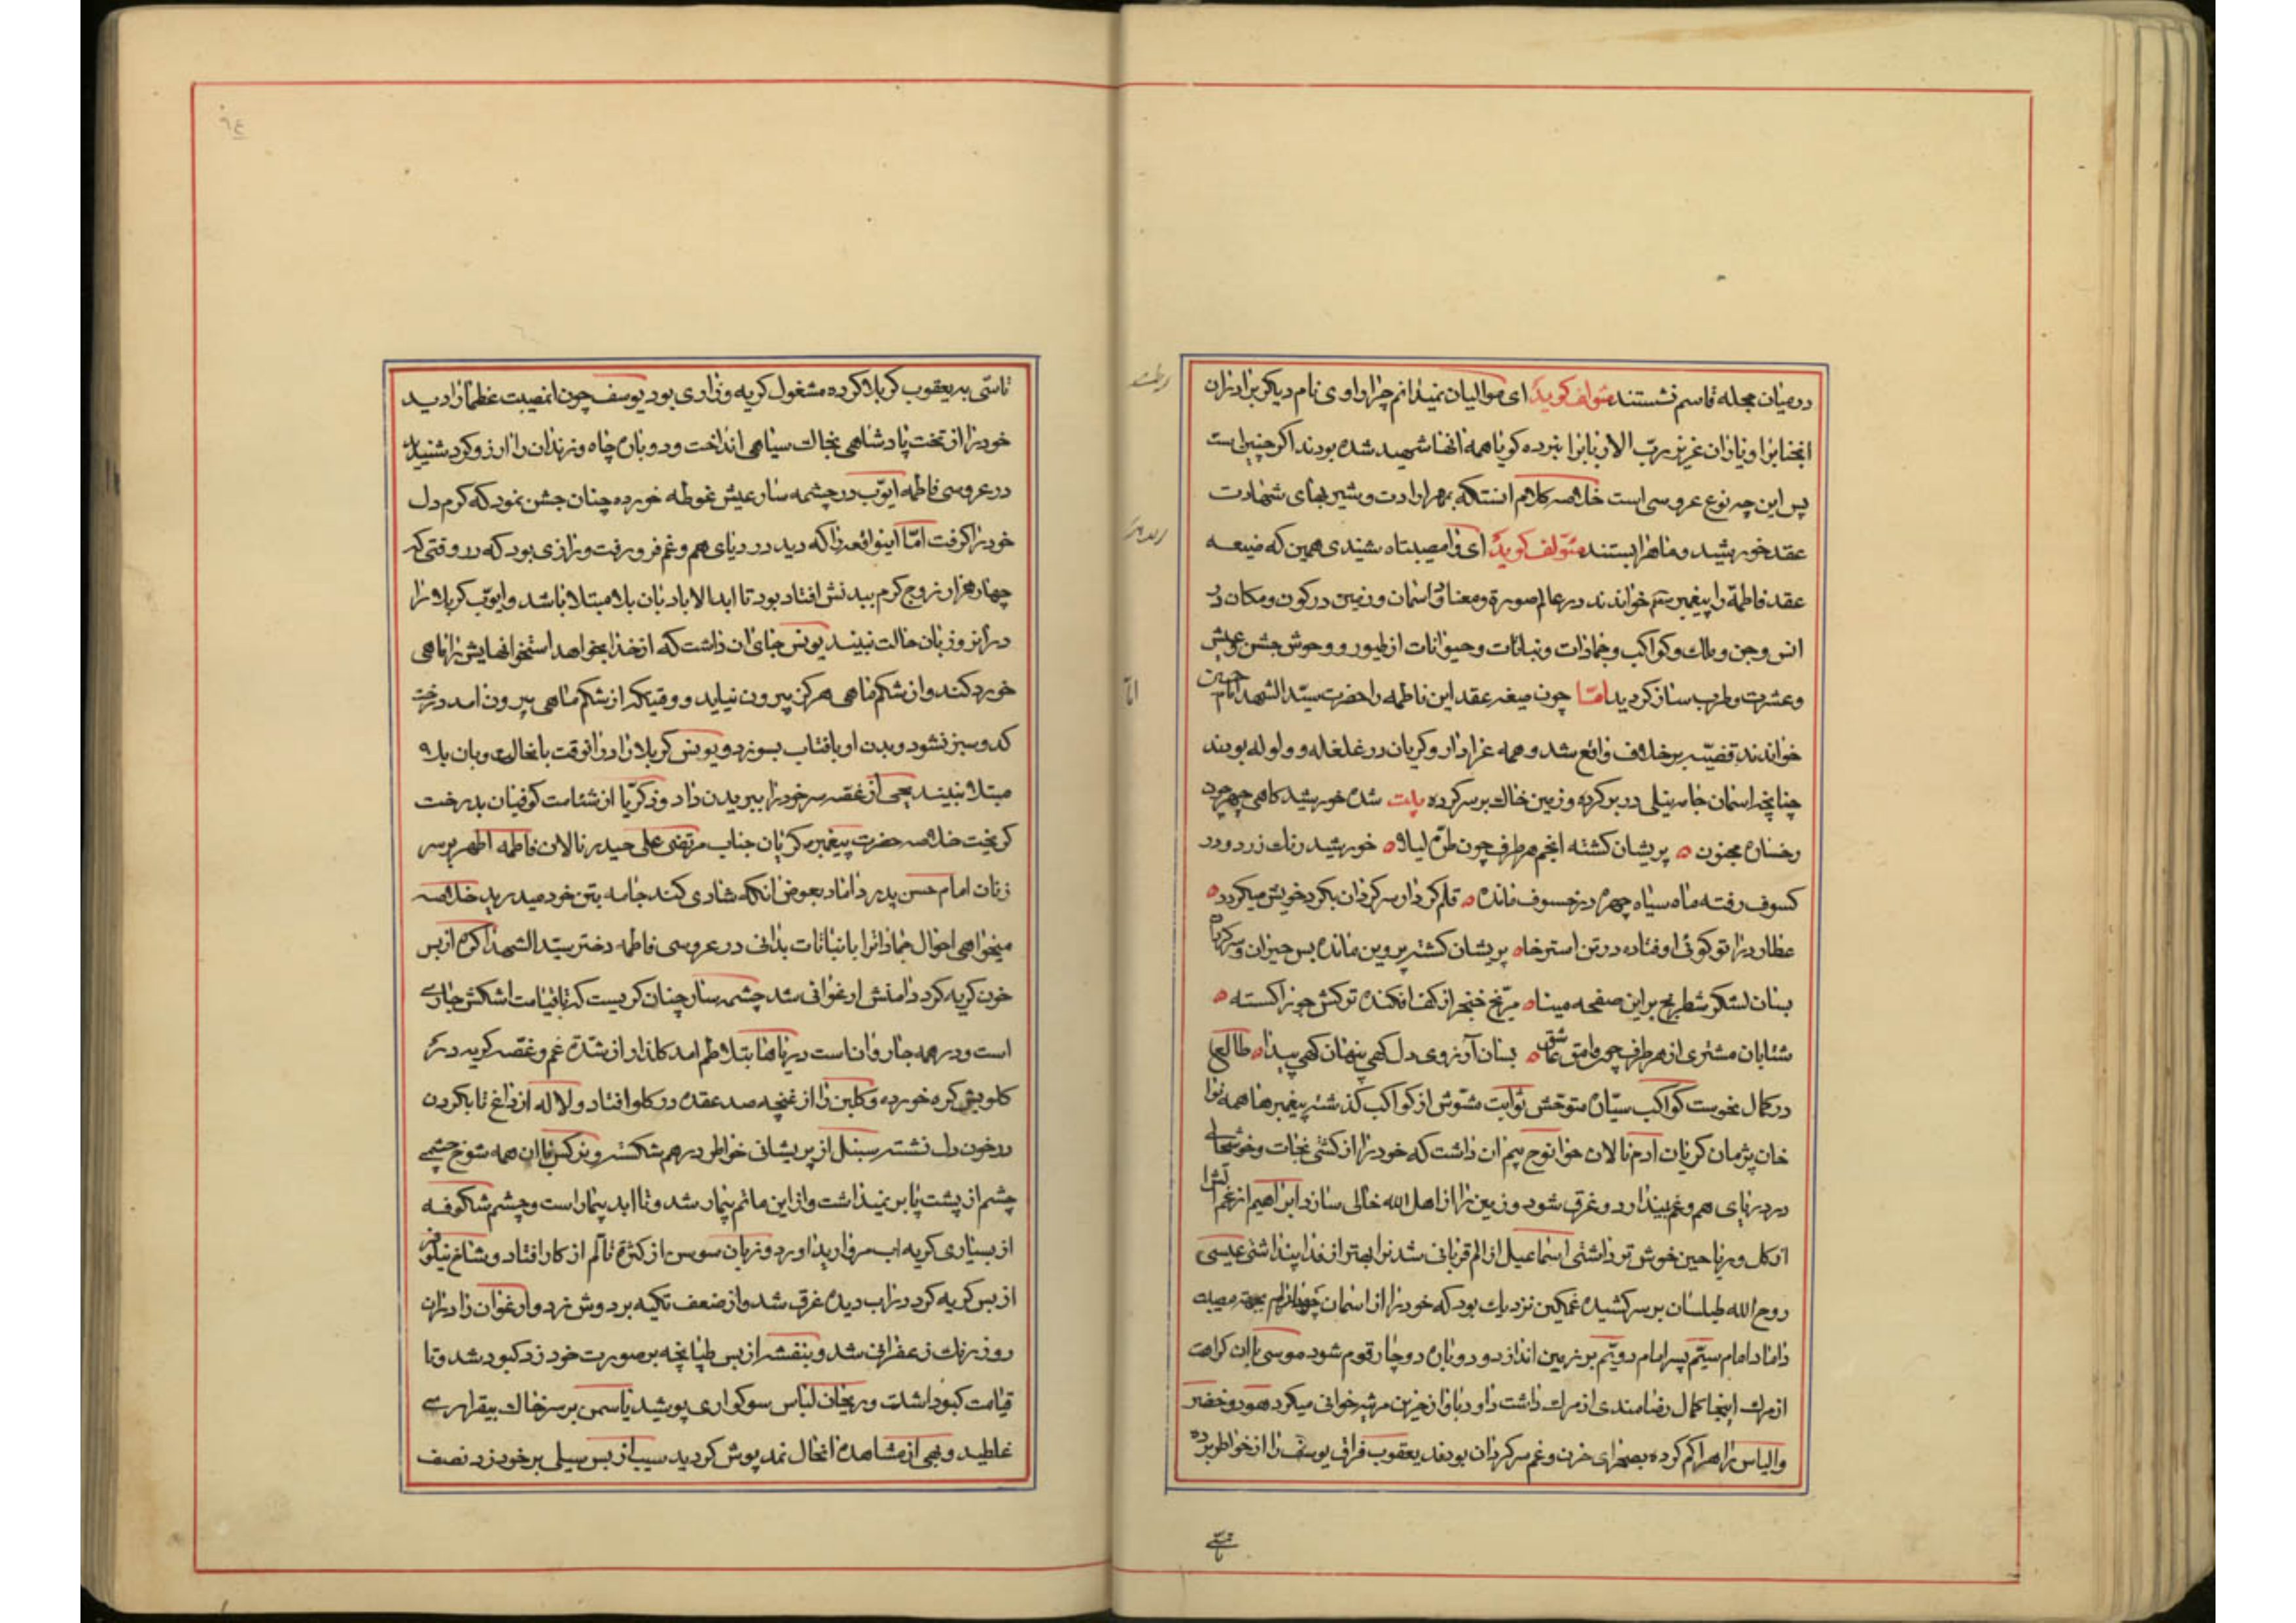 در میان حجله قاسم نشستند مؤلف کوید ای موالیان نمیدانم چرا راوی نام دیکر برادران
انجنابرا و یاران عزیز ربّ الاربابرا نبرده کویا همه انها شهید شده بودند اکر چنین است
پس این چه نوع عروسی است خلاصه کلام انستکه بمهر ارادت و شیر بهای شهادت
عقد خورشید و ماهرا بستند مؤلف کوید ای وا مصیبتاه شیندی همین که صیغه
عقد فاطمه را پیغمبر خواندند در عالم صورة و معنا و اسمان و زمین در کون و مکان در
انس و جن و ملک و کواکب و جمادات و نباتات و حیوانات از طیور و وحوش جشن عیش
و عشرت و طرب ساز کردید امّا چون صیغه عقد این فاطمه را حضرت سیّد الشهدا امام حسین
خواندند قضیّه بر خلاف واقع شد و همه عزادار و کریان در غلغله و ولوله بودند
چنانچه اسمان جامه نیلی در بر کرده و زمین خاک بر سر کرده بیت شده خورشید کاهی چهره چون
رخساره مجنون ه پریشان کشته انجم هر طرف چون طرّه لیلا ه خورشید رنک زرد و در
کسوف رفته ماه سیاه چهره در خسوف مانده ه قلم کردار سرکردان بکرد خویش میکردد ه
عطارد را تو کوئی اوفتاده در تن استرخا ه پریشان کشته پروین مانده بس حیران و سرکردان
بسان لشکر شطرنج بر این صفحه مینا ه مرّیخ خنجر از کف افکنده ترکش جوزا کسسته ه
شتابان مشتری از هر طرف چون وامق عاشق ه بسان آرزوی دل کهی پنهان کهی پیدا ه طالع
در کمال نحوست کواکب سیّاره متوحّش ثوابت مشوّش از کواکب کذشته پیغمبرها همه نوا
خان پژمان کریان ادم نالان حوا نوح بیم ان داشت که خود را از کشتی نجات و خوشحالی
در دریای هم و غم بیندازد و غرق شود و زمین را از اهل الله خالی سازد ابراهیم از غم آتش را
از کل و ریاحین خوش تر داشتی اسماعیل از الم قربانی شدنرا بهتر از فدا پنداشتی عیسی
روح الله طیلسان بر سر کشیده غمکین نزدیک بود که خود را از اسمان چهارم بجهت مصیبت
داماد امام سیّم پسر امام دویّم بر زمین اندازد و دوباره دوچار قوم شود موسی با ان کراهت
از مرک اینجا کمال رضامندی از مرک داشت داود باواز حزین مرثیه خوانی میکرد هود و خضر
و الیاس راه را کم کرده بصحرای حزن و غم سرکردان بودند یعقوب فراق یوسف را از خواطر برده
تاسّی
تاسّی به یعقوب کربلا کرده مشغول کریه و زاری بود یوسف چون انمصیبت عظما را دید
خود را از تخت پادشاهی بخاک سیاهی انداخت و دوباره چاه و زندان را ارزو کرد شنیدی
در عروسی فاطمه ایّوب در چشمه سار عیش غوطه خورده چنان جشن نمود که کرم دل
خود را کرفت امّا اینواقعه را که دید در دریای هم و غم فرو رفت و راضی بود که در وقتی که
چهار هزار زوج کرم ببدنش افتاد بود تا ابد الاباد بان بلا مبتلا باشد و ایوّب کربلا را
در انروز بان حالت نبیند یونس جای ان داشت که از خدا بخواهد استخوانهایش را ماهی
خورد کند و از شکم ماهی هرکز بیرون نیاید و وقتیکه از شکم ماهی بیرون امد درخت
کدو سبز نشود و بدن او بافتاب بسوزد و یونس کربلا را در انوقت بانحالت و بان بلا
مبتلا نبیند یحیی از غصه سر خود را ببریدن داد و زکریّا از شماتت کوفیان بدرخت
کریخت خلاصه حضرت پیغمبر کریان جناب مرتضی علی حیدر نالان فاطمه اطهر بر سر
زنان امام حسن پدر داماد بعوض انکه شادی کند جامه بتن خود میدرید خلاصه
میخواهی احوال جمادات را با نباتات بدانی در عروسی فاطمه دختر سیّد الشهدا کره از بس
خون کریه کرد دامنش ارغوانی شد چشمه سار چنان کریست که تا قیامت اشکش جاری
است و در همه جا روان است دریاها بتلاطم امد کلذار از شدّة غم و غصّه کریه در
کلویش کره خورده و کلبن را از غنچه صد عقده در کلو افتاد و لاله از داغ تا بکردن
در خون دل نشسته سنبل از پریشانی خواطر در هم شکسته و نرکس با ان همه شوخ چشمی
چشم از پشت پا بر نمیداشت و از این ماتم بیمار شد و تا ابد بیمار است و چشم شاکوفه
از بسیاری کریه اب مروارید اورد و زبان سوسن از کثرة تألّم از کار افتاد و شاخ نیلوفر
از بس کریه کرد در اب دیده غرق شد و از ضعف تکیه بر دوش زد و ارغوان را در ان
روز رنک زعفرانی شد و بنفشه از بس طپانچه بر صورت خود زد کبود شد و تا
قیامت کبود است و ریحان لباس سوکواری پوشید یاسمن بر سر خاک بیقراری
غلطید و بهی از مشاهده انحال نمد پوش کردید سیب از بس سیلی بر خود زد نصف